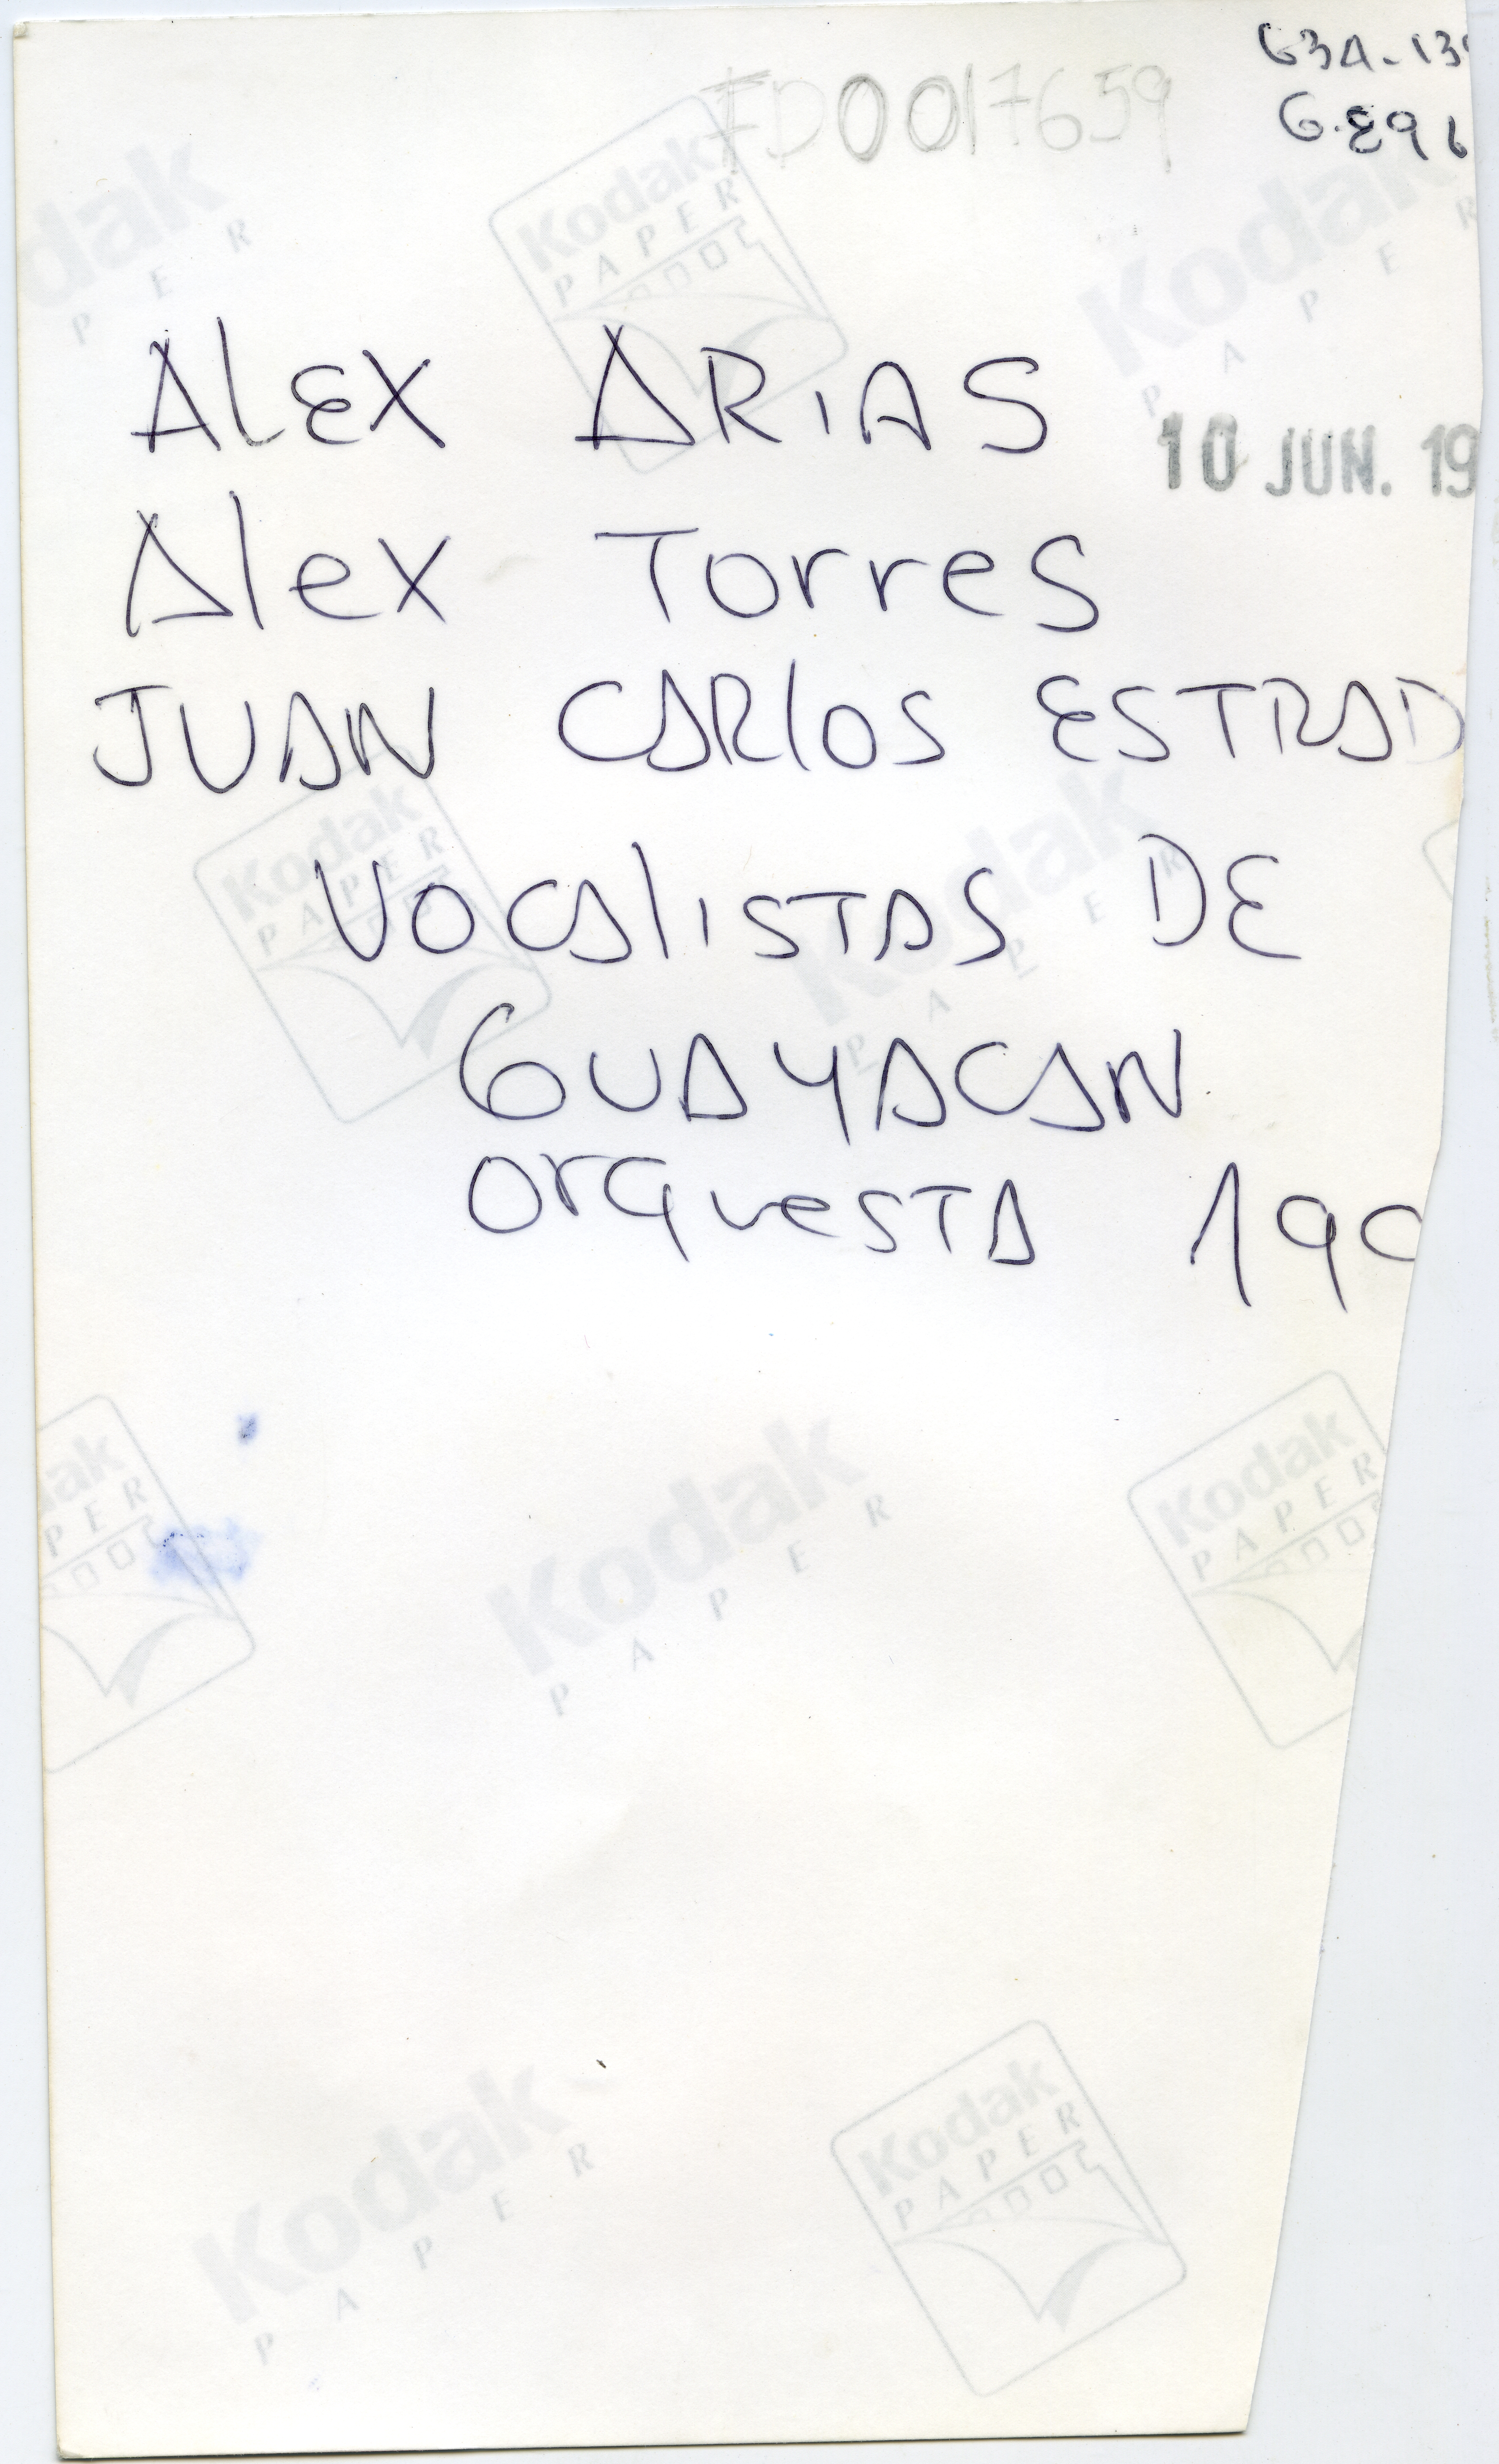 FD0017659
G3A-13
G.E96
ALEX ARIAS
10 JUN. 19
Alex Torres
JUAN CARlOS ESTRAD
VOCAlISTAS DE
GUAYACAN
OrQuesTA 199
Kodak
PAPER